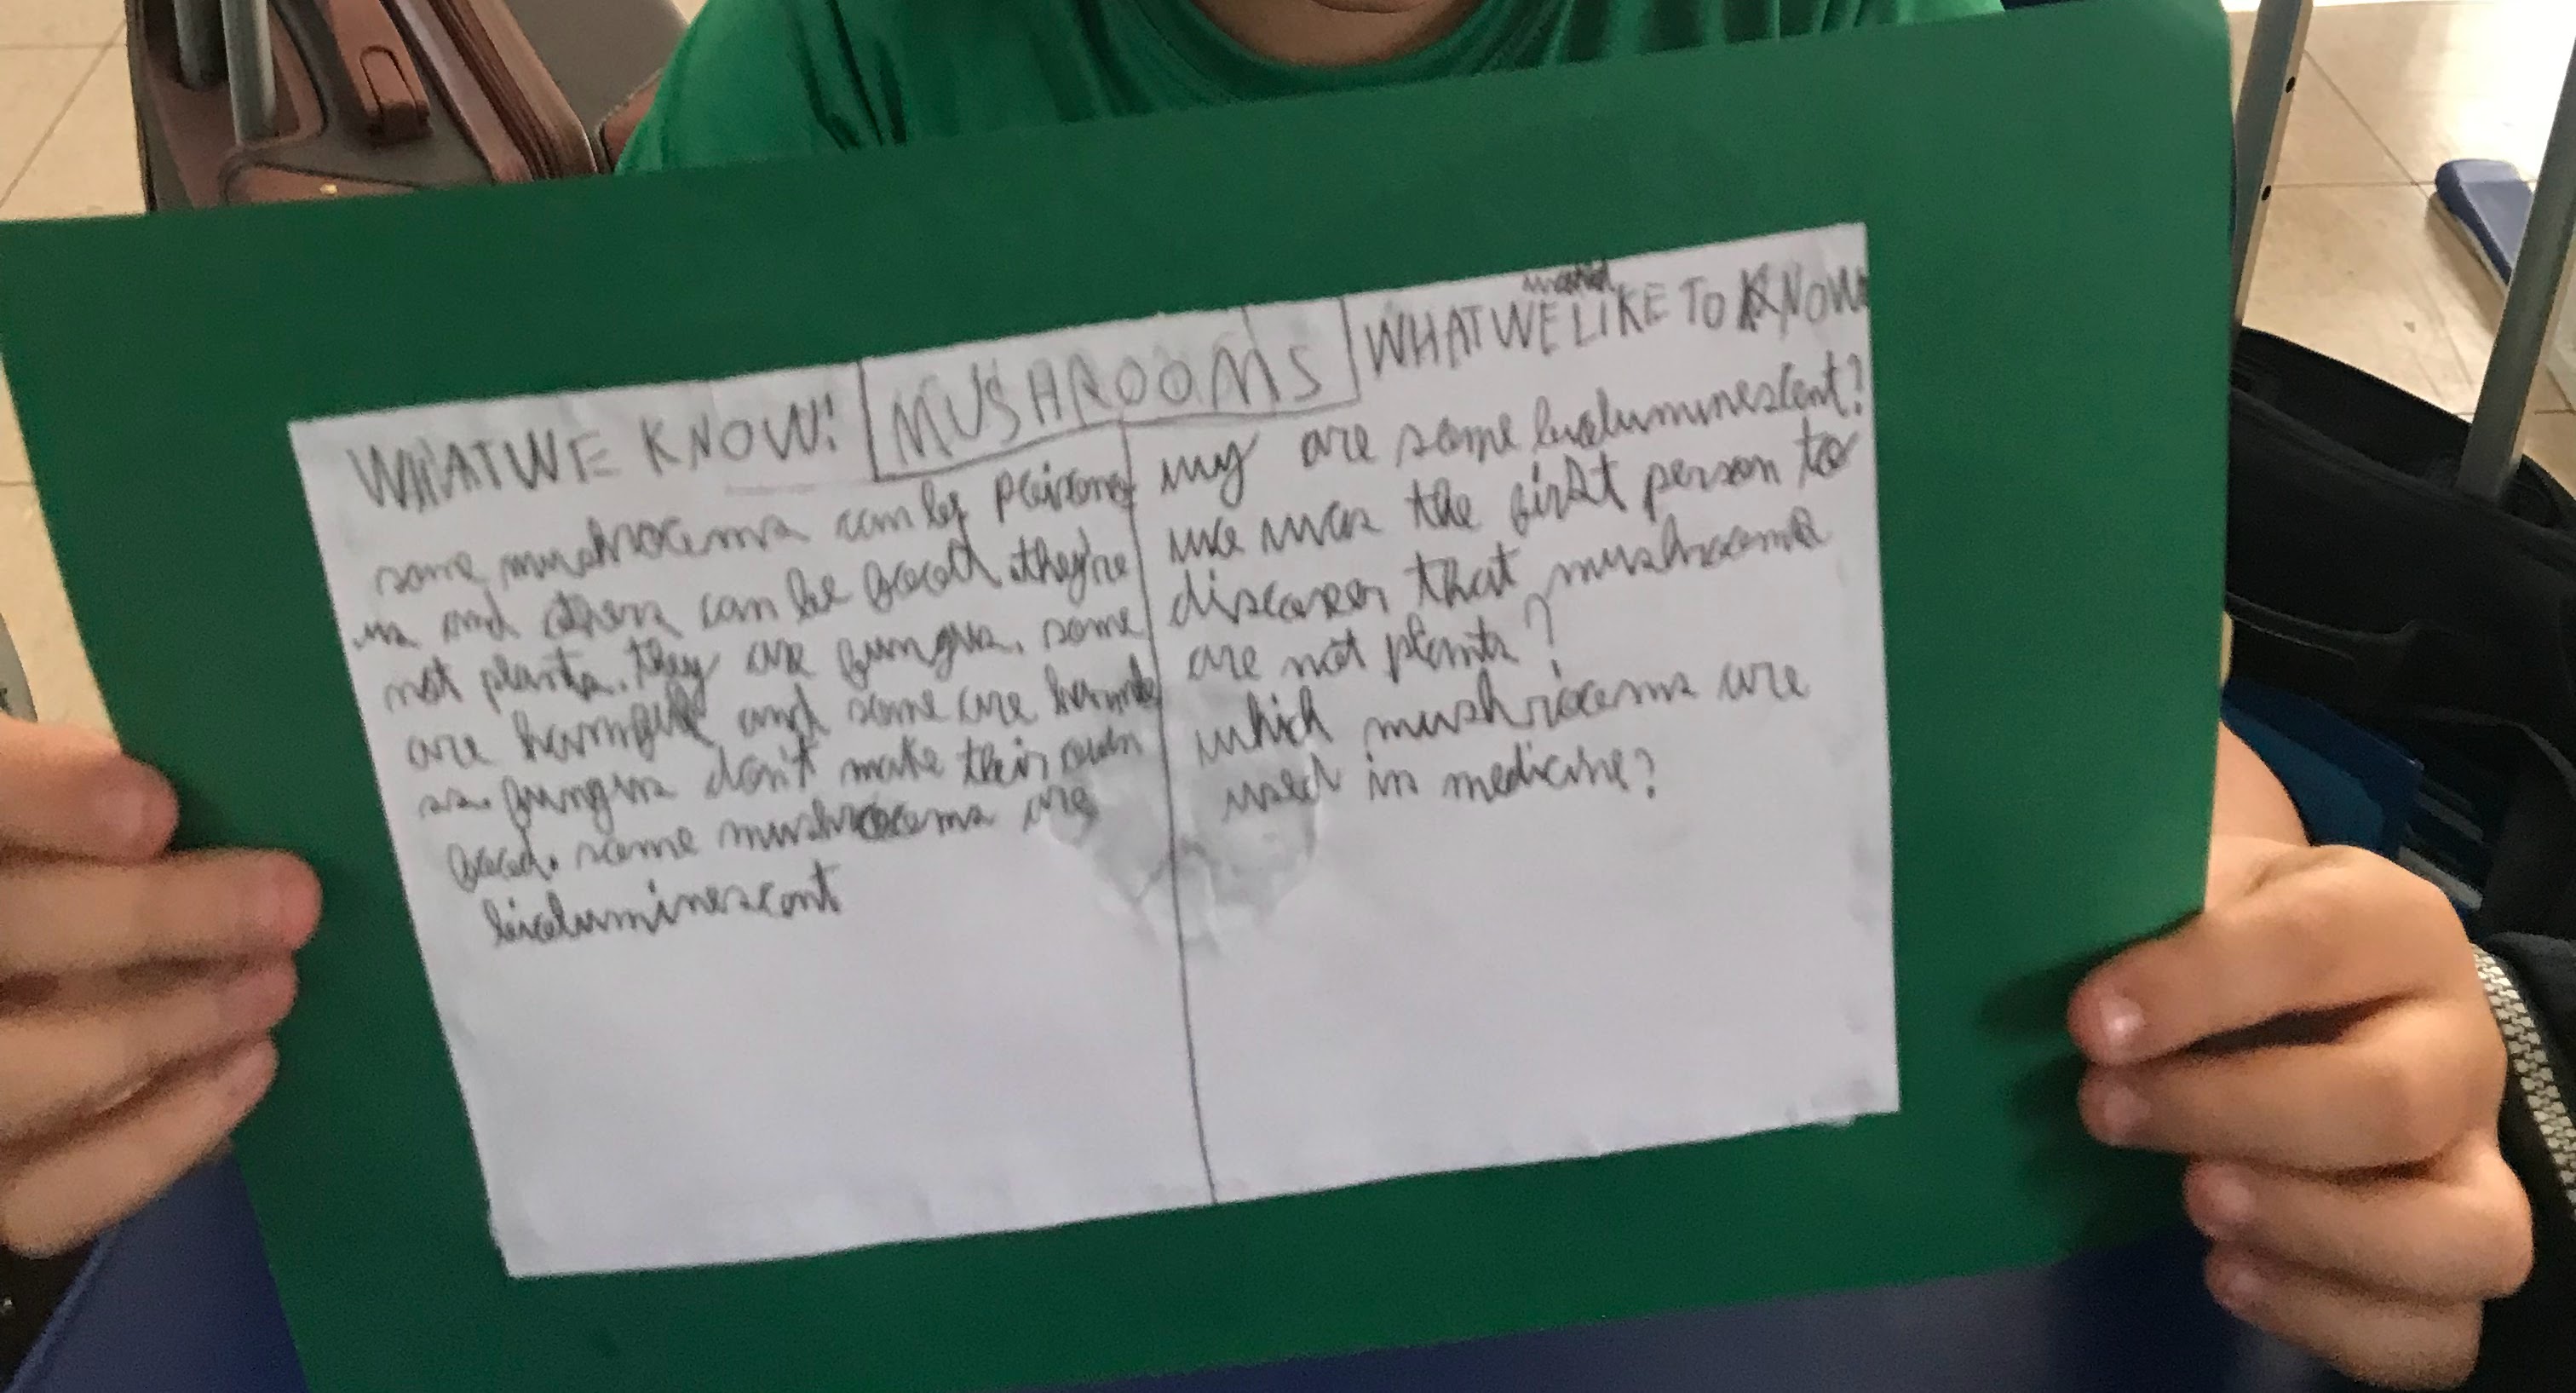 WHAT WE KNOW!
MUSHROOMS
would
WHAT WE LIKE TO KNOW
some mushrooms can be poisono
us and others can be food. they're
not plants. they are fungus. some
are harmfull and some are harmle
ss. fungus don't make their own
food. some mushrooms are
bioluminescent
my are some bioluminescent?
was the first person to
discover that mushrooms
are not plants?
which mushrooms are
used in medicine?